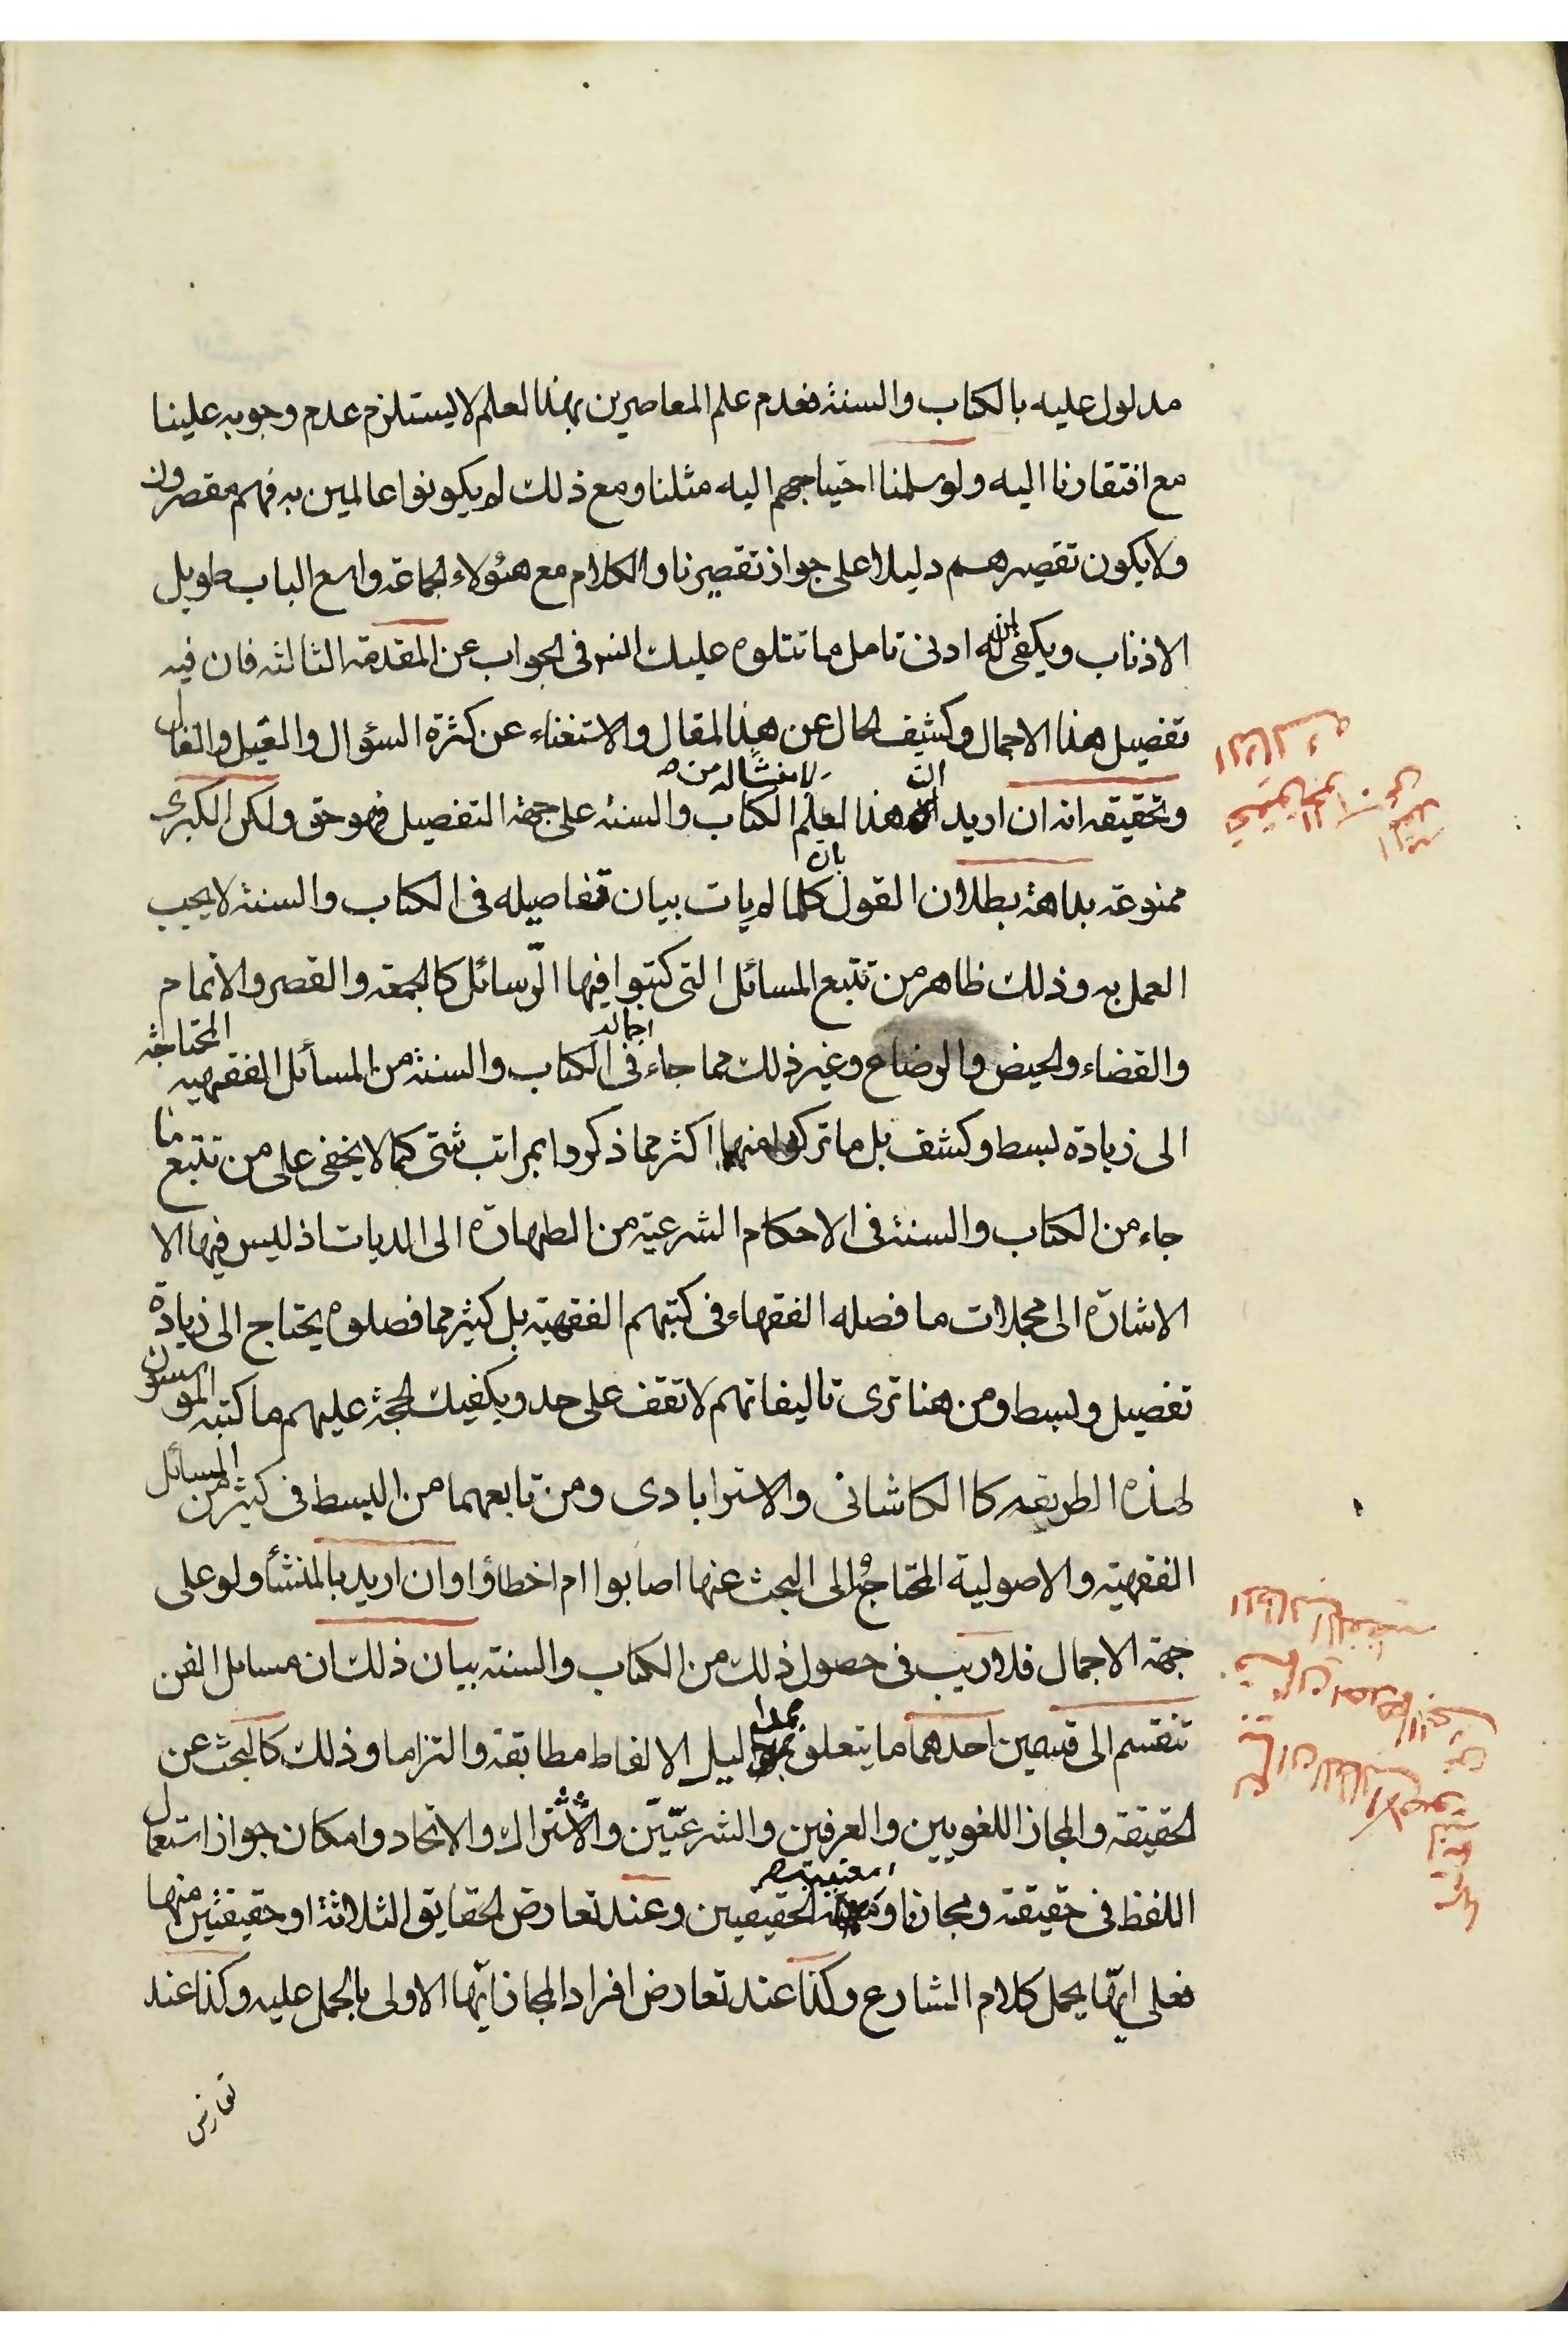 مدلول عليه بالكتاب والسنة فعدم علم المعاصرين بهذا لعلم لا يستلزم عدم وجوبه علينا
مع افتقارنا اليه ولو سلمنا احتياجهم اليه مثلنا ومع ذلك لم يكونوا عالمين به فهم مقصرون
ولا يكون تقصيرهم دليلا على جواز تقصيرنا والكلام مع هؤلاء الجماعة واسع الباب طويل
الاذناب ويكفى لمن له ادنى تامل ما نتلوه عليك انشر فى الجواب عن المقدمة الثالثة فان فيه
تفصيل هذا الاجمال وكشف الحال عن هذا لمقال والاستغناء عن كثرة السؤال والقيل والقال
وتحقيقه انه ان اريد ان هذا لعلم لا منشأ له من الكتاب والسنة على جهة التفصيل فهو حق ولكن الكبرى
ممنوعة بداهة بطلان القول بان كلما لم يات بيان تفاصيله فى الكتاب والسنة لا يجب
العمل به وذلك ظاهر من تتبع المسائل التى كتبوا فيها الرّسائل كالجمعة والقصر والاتمام
والقضاء والحيض والرضاع وغير ذلك مما جاء اجماله فى الكتاب والسنة من المسائل الفقهية المحتاجة
الى زيادة بسط وكشف بل ما تركوا منها اكثر مما ذكروا بمراتب شتى كما لا يخفى على من تتبع ما
جاء من الكتاب والسنة فى الاحكام الشرعية من الطهارة الى الديات اذ ليس فيها الا
الاشارة الى مجملات ما فصله الفقهاء فى كتبهم الفقهية بل كثير مما فصلوه يحتاج الى زيادة
تفصيل وبسط ومن هنا ترى تاليفاتهم لا تقف على حد ويكفيك الحجة عليهم ما كتبه المؤسسون
لهذه الطريقة كالكاشانى والاسترابادى ومن تابعهما من البسط فى كثير من المسائل
الفقهية والاصولية المحتاج الى البحث عنها اصابوا ام اخطاؤا وان اريد بالمنشأ ولو على
جهة الاجمال فلا ريب فى حصول ذلك من الكتاب والسنة بيان ذلك ان مسايل الفن
تنقسم الى قسمين احدهما ما يتعلق بمداليل الالفاظ مطابقة والتزاما وذلك كالبحث عن
الحقيقة والمجاز اللغويين والعرفيين والشرعيّين والاشتراك والاتحاد وامكان جواز استعمال
اللفظ فى حقيقة ومجازا و الحقيقيين وعند تعارض الحقايق الثلاثة او حقيقتين منها
فعلى ايّها يحمل كلام الشارع وكذا عند تعارض افراد المجاز ايّها الاولى بالحمل عليه وكذا عند
تعارض